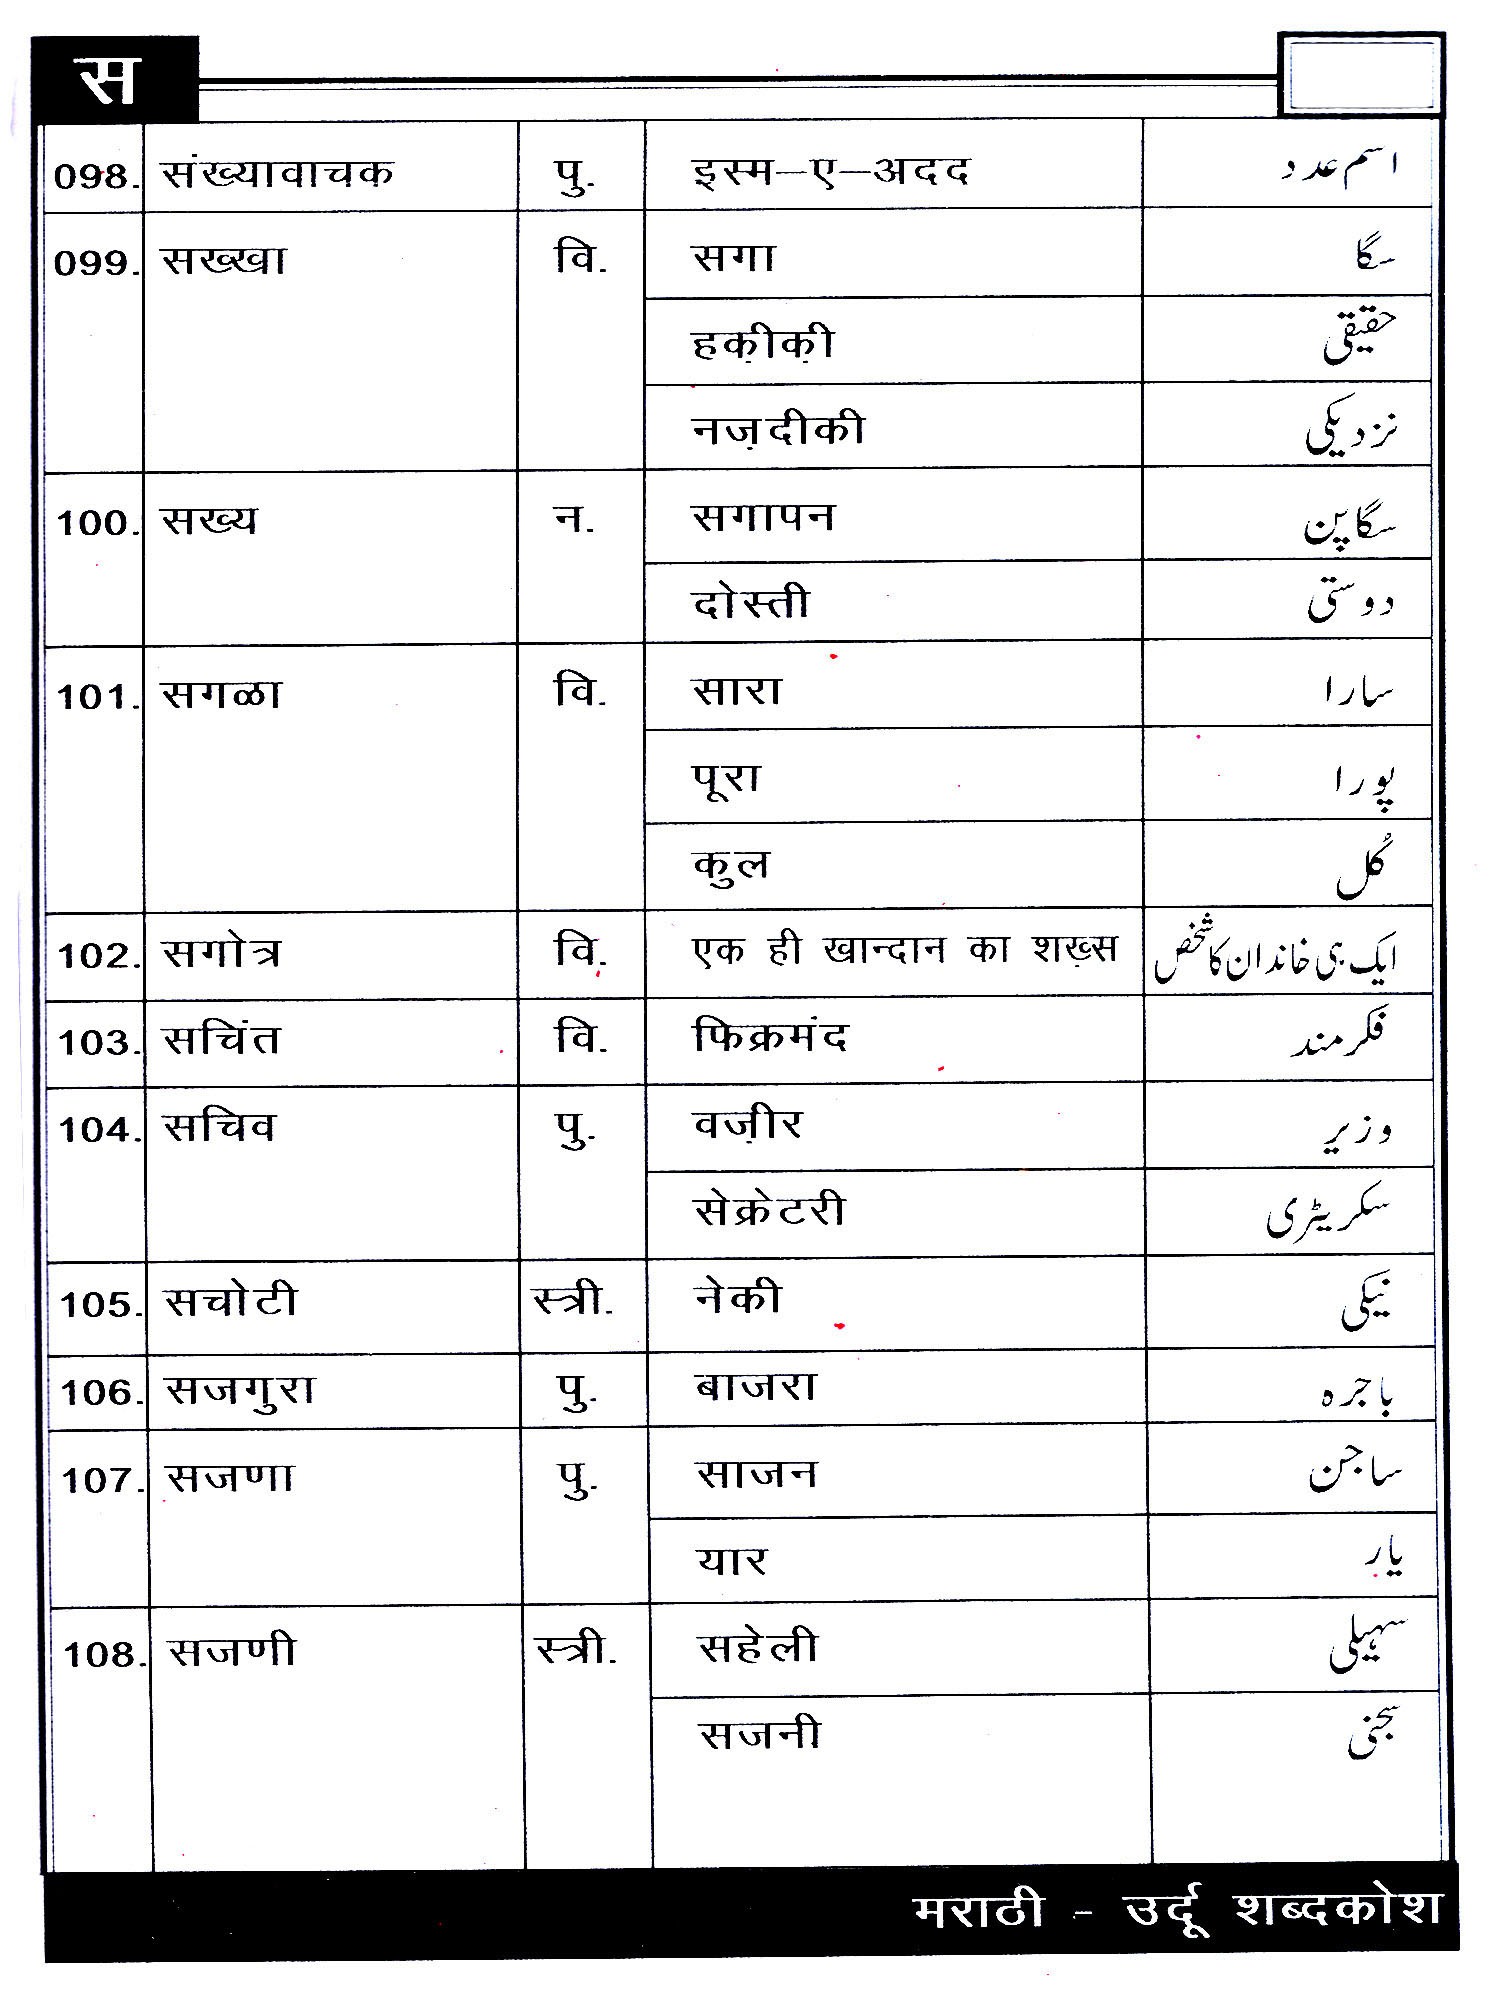 स
098. संख्यावाचक पु. इस्म-ए-अदद اسم عدد
099. सख्खा वि. सगा سگا
हक़ीक़ी حقیقی
नज़दीकी نزدیکی
100. सख्य न. सगापन سگاپن
दोस्ती دوستی
101. सगळा वि. सारा سارا
पूरा پورا
कुल کُل
102. सगोत्र वि. एक ही खान्दान का शख़्स ایک ہی خاندان کا شخص
103. सचिंत वि. फिक्रमंद فکرمند
104. सचिव पु. वज़ीर وزیر
सेक्रेटरी سکریٹری
105. सचोटी स्त्री. नेकी نیکی
106. सजगुरा पु. बाजरा باجرہ
107. सजणा पु. साजन ساجن
यार یار
108. सजणी स्त्री. सहेली سہیلی
सजनी سجنی
मराठी - उर्दू शब्दकोश